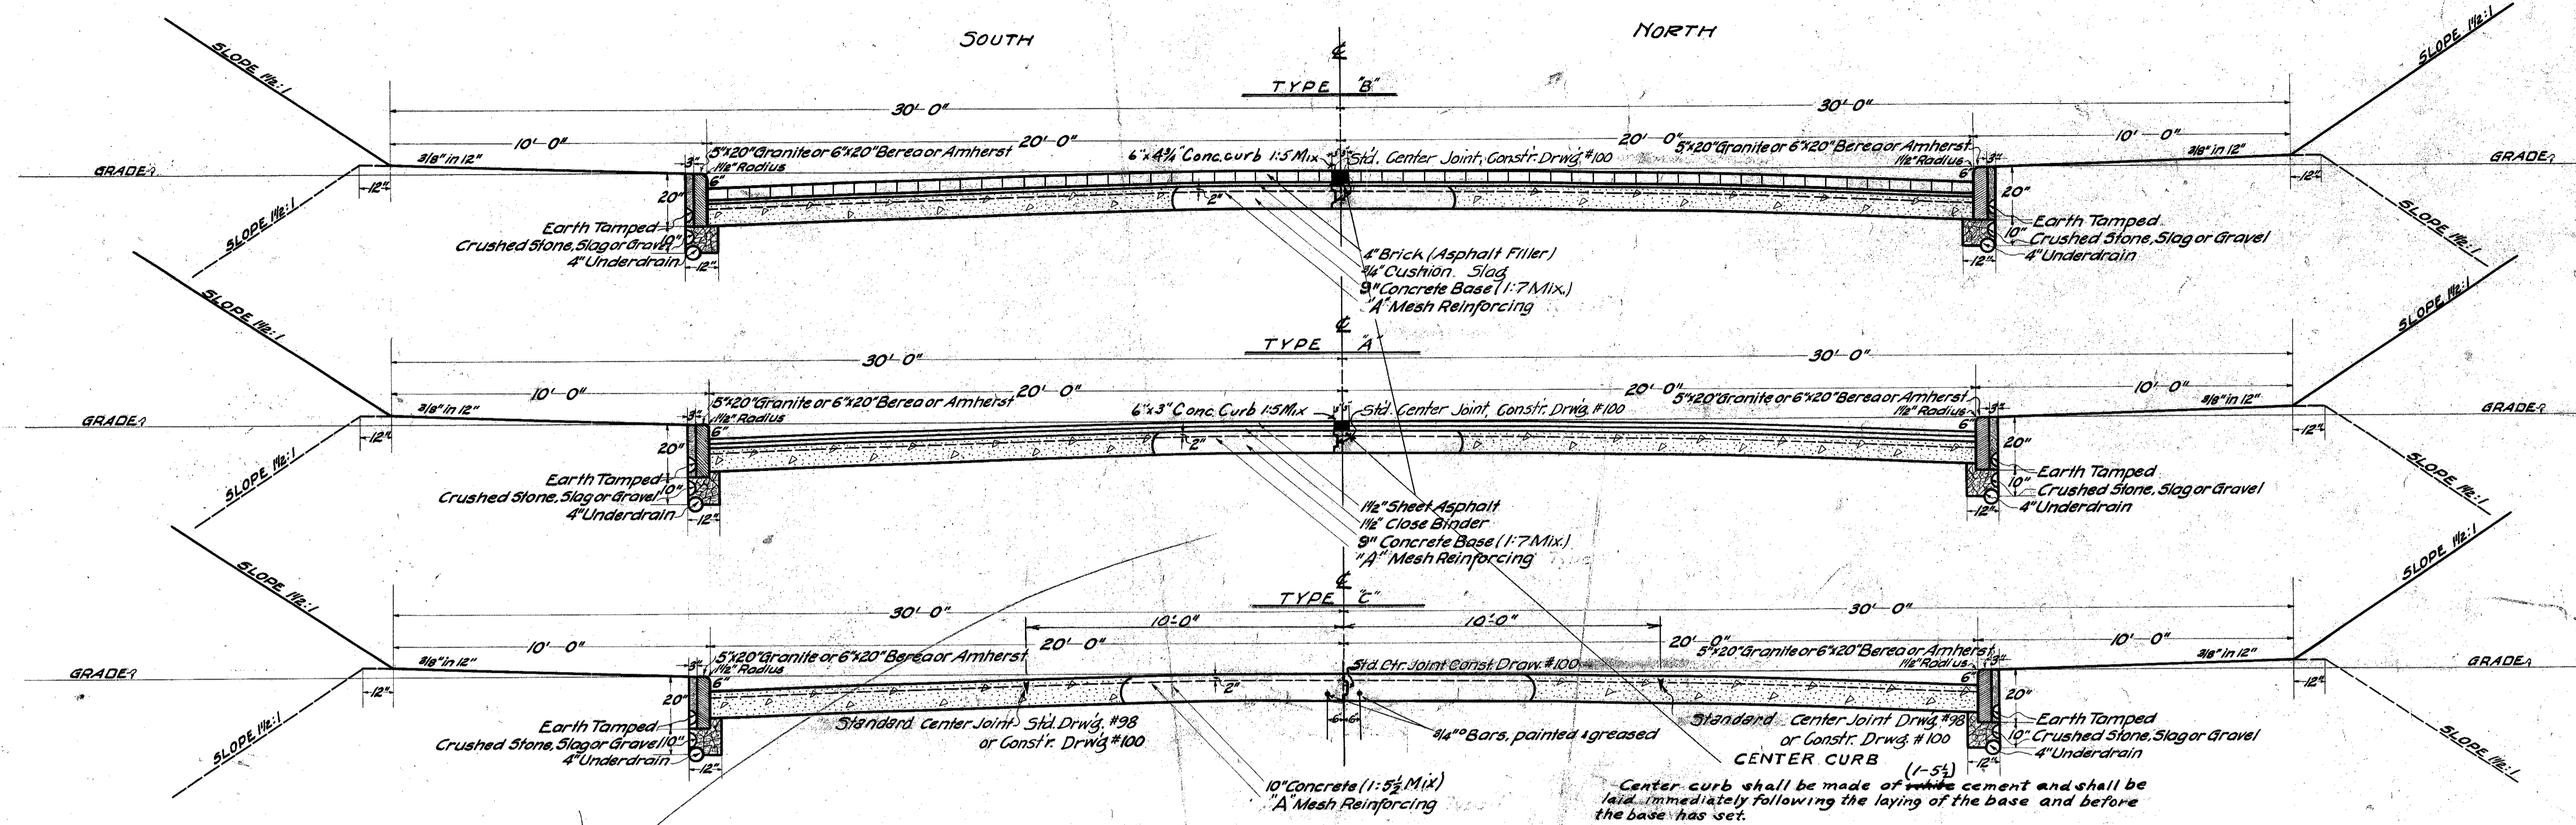 SOUTH
NORTH
℄
TYPE "B"
SLOPE 1½:1
SLOPE 1½:1
30'-0"
30'-0"
10'-0"
20'-0"
20'-0"
10'-0"
GRADE
3/8" in 12"
3"
5"x20" Granite or 6"x20" Berea or Amherst
1½" Radius
6"x4¾" Conc. curb 1:5 Mix
Std. Center Joint, Constr. Drwg. #100
5"x20" Granite or 6"x20" Berea or Amherst
1½" Radius
3"
3/8" in 12"
GRADE
12"
20"
6"
2"
6"
20"
12"
SLOPE 1½:1
SLOPE 1½:1
Earth Tamped
Crushed Stone, Slag or Gravel
10"
4" Underdrain
12"
Earth Tamped
10"
Crushed Stone, Slag or Gravel
4" Underdrain
12"
4" Brick (Asphalt Filler)
¾" Cushion Slag
9" Concrete Base (1:7 Mix.)
"A" Mesh Reinforcing
℄
TYPE "A"
SLOPE 1½:1
SLOPE 1½:1
30'-0"
30'-0"
10'-0"
20'-0"
20'-0"
10'-0"
GRADE
3/8" in 12"
3"
5"x20" Granite or 6"x20" Berea or Amherst
1½" Radius
6"x3" Conc. Curb 1:5 Mix
Std. Center Joint, Constr. Drwg. #100
5"x20" Granite or 6"x20" Berea or Amherst
1½" Radius
3"
3/8" in 12"
GRADE
12"
20"
6"
2"
6"
20"
12"
SLOPE 1½:1
SLOPE 1½:1
Earth Tamped
Crushed Stone, Slag or Gravel
10"
4" Underdrain
12"
Earth Tamped
10"
Crushed Stone, Slag or Gravel
4" Underdrain
12"
1½" Sheet Asphalt
1½" Close Binder
9" Concrete Base (1:7 Mix.)
"A" Mesh Reinforcing
℄
TYPE "C"
SLOPE 1½:1
SLOPE 1½:1
30'-0"
30'-0"
10'-0"
10'-0"
10'-0"
20'-0"
20'-0"
10'-0"
GRADE
3/8" in 12"
3"
5"x20" Granite or 6"x20" Berea or Amherst
1½" Radius
Std. Ctr. Joint Const. Draw. #100
5"x20" Granite or 6"x20" Berea or Amherst
1½" Radius
3"
3/8" in 12"
GRADE
12"
20"
6"
2"
6"
20"
12"
SLOPE 1½:1
SLOPE 1½:1
6"
6"
Standard Center Joint Std. Drwg. #98
or Constr. Drwg. #100
¾" Bars, painted & greased
Standard Center Joint Drwg. #98
or Constr. Drwg. #100
Earth Tamped
Crushed Stone, Slag or Gravel
10"
4" Underdrain
12"
Earth Tamped
10"
Crushed Stone, Slag or Gravel
4" Underdrain
12"
10" Concrete (1:5½ Mix)
"A" Mesh Reinforcing
CENTER CURB
(1-5½)
Center curb shall be made of white cement and shall be
laid immediately following the laying of the base and before
the base has set.